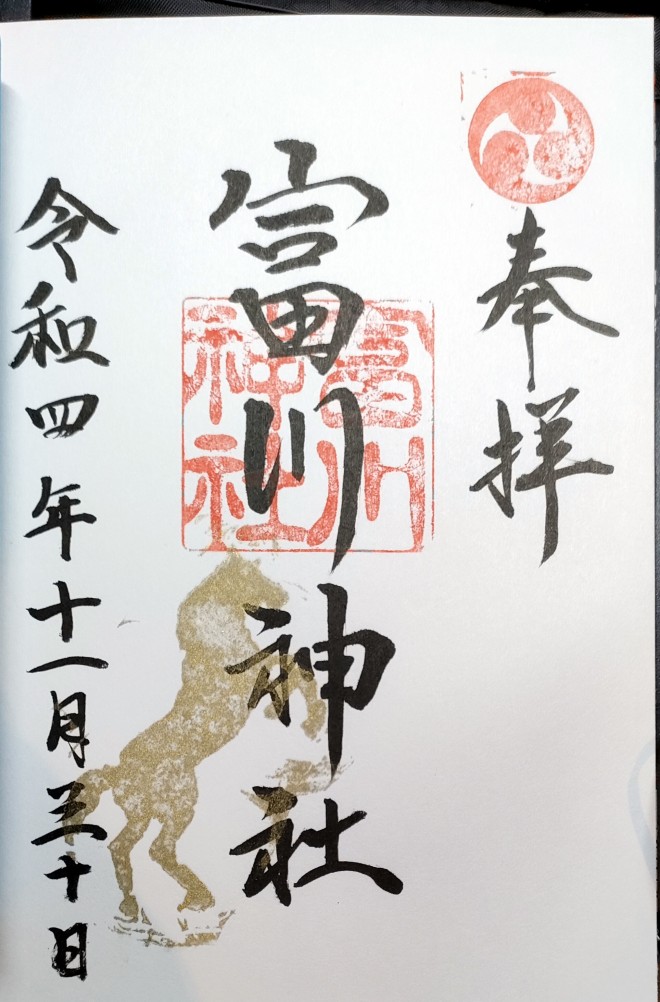 奉拝
富川神社
富川神社
令和四年十一月三十日